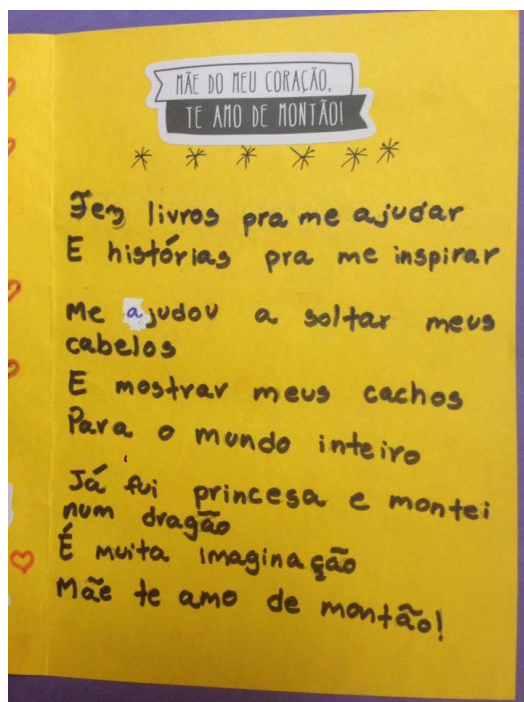 MÃE DO MEU CORAÇÃO,
TE AMO DE MONTÃO!
Fez livros pra me ajudar
E histórias pra me inspirar
Me ajudou a soltar meus
cabelos
E mostrar meus cachos
Para o mundo inteiro
Já fui princesa e montei
num dragão
É muita imaginação
Mãe te amo de montão!